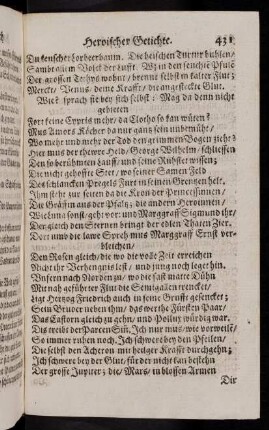 Heroischer Getichte. 431
Du keuscher Lorbeerbaum. Die heischen Turner buhlen/
Sambt allem Volck der Lufft. Was in den feuchte Pfule
Der grossen Tethys wohnt/ brennt selbst in kalter Flut;
Mercks/ Venus/ deine Krafft/ die angesteckte Glut.
Wie? sprach sie bey sich selbst: Mag da denn nicht
gebieten
Fort keine Cypris mehr/ da Clotho so kan wüten?
Mus Amors Köcher da nur gantz sein unbemüht/
Wo mehr und mehr der Tod den grimmen Bogen zieht?
Hier mus der thewre Held/ George Wilhelm/ schliessen
Den so berühmten Lauff/ und seine Ruhster wissen;
Die nicht gehoffte See/ wo seiner Samen Feld
Des schlancken Pregels Zunt in seinen Grentzen helt.
Ihm stehe zur seiten da die Kron der Princessinnen/
Die Gräffin aus der Pfaltz; die andern Heroinnen/
Wiehmna sonst/ geht vor: und Marggraff Sigmund ihr/
Der gleich den Sternen bringt der edlen Thaten Zier.
Dort und die lawe Spreh mus Marggraff Ernst ver-
bleichen/
Den Rosen gleich/ die wo die volle Zeit erreichen
Nicht ihr Verhengnis lest/ und jung noch leget hin.
Unfern nach Norden zu/ wo die fast matte Dühn
Mit nah geführter Flut die Semigalen rencket/
ligt Hertzog Friedrich auch in seine Grufft gesencket;
Sein Bruder neben ihm/ das werthe Fürsten Paar/
Das Castorn gleich zu gehn/ und Pollux würdig war.
Dis treibt der Parcen Sin. Ich nur mus/ wie vorweilē/
So immer ruhen noch. Ich schwer bey den Pfeilen/
Die selbst den Acheron mit heilger Krafft durchgehn;
Ich schwere bey der Glut/ für der nicht kan bestehn
Der grosse Jupiter; die/ Mars/ in blossen Armen
Dir